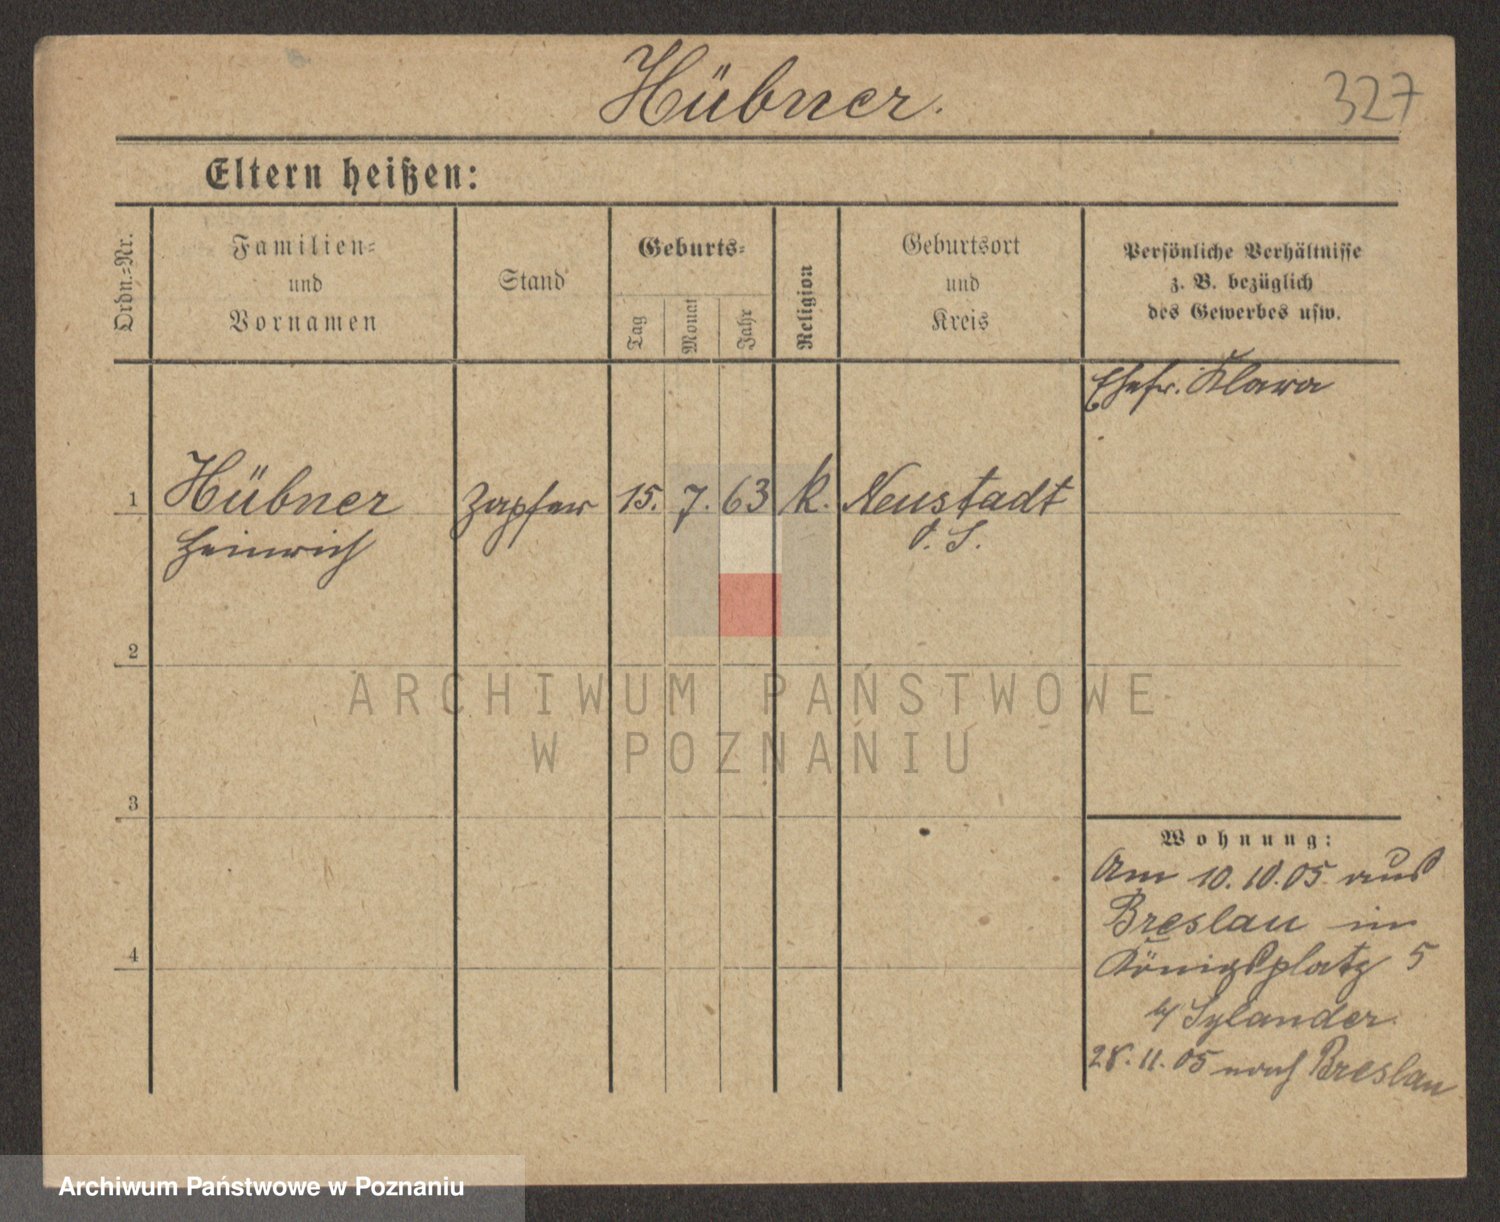 Hübner.
327
Eltern heißen:
Ordn.=Nr.
Familien=
und
Vornamen
Stand
Geburts=
Tag
Monat
Jahr
Religion
Geburtsort
und
Kreis
Persönliche Verhältnisse
z. B. bezüglich
des Gewerbes usw.
Ehefr. Klara
1 Hübner Zapfer 15. 7. 63 k. Neustadt
Heinrich O. S.
2
3
4
Wohnung:
Am 10.10.05 aus
Breslau in
Königsplatz 5
b/ Sylander
28.11.05 nach Breslau
ARCHIWUM PAŃSTWOWE
W POZNANIU
Archiwum Państwowe w Poznaniu